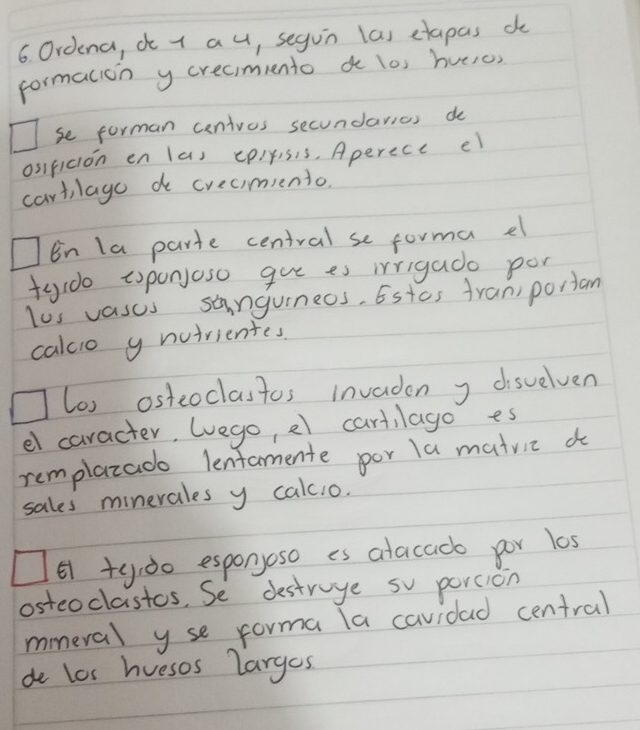 6. Ordena, de 1 a 4, según las etapas de
formación y crecimiento de los huesos
se forman centros secundarios de
osifición en las epifisis. Aperece el
cartilago de crecimiento.
En la parte central se forma el
tejido esponjoso que es irrigado por
los vasos sanguineos. Estos transportan
calcio y nutrientes.
Los osteoclastos invaden y disuelven
el caracter. Luego, el cartilago es
remplazado lentamente por la matriz de
sales minerales y calcio.
El tejido esponjoso es atacado por los
osteoclastos. Se destruye su porción
mineral y se forma la cavidad central
de los huesos largos